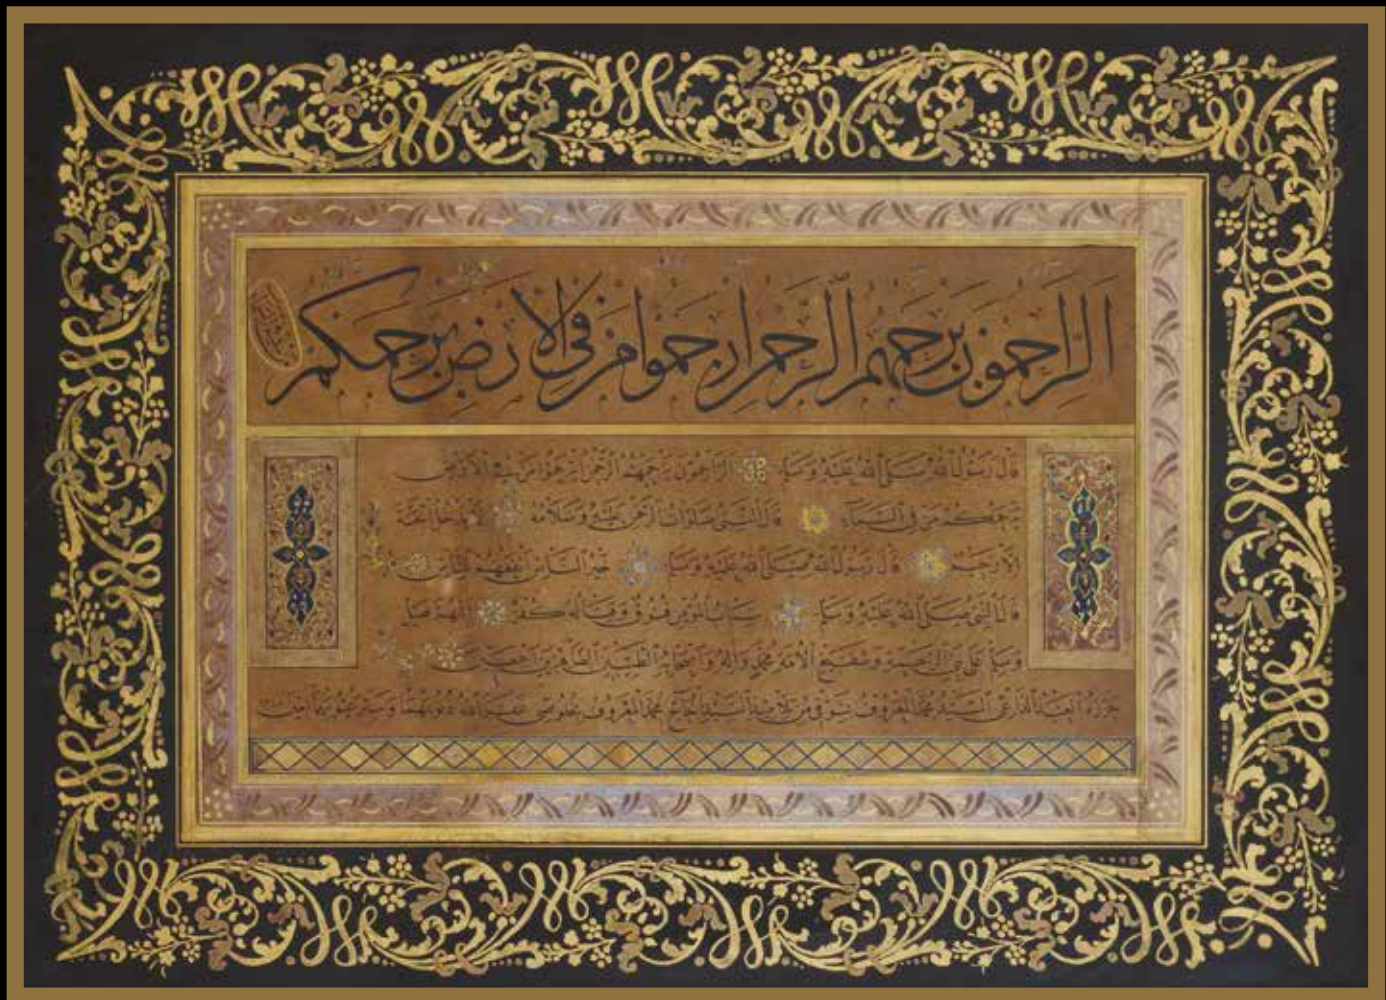 الراحمون يرحمهم الرحمن ارحموا من في الارض يرحمكم
قال رسول الله صلى الله عليه وسلم الراحمون يرحمهم الرحمن ارحموا من في الارض
يرحمكم من في السماء قال النبي صلوات الرحمن عليه وسلامه لا يدخل الجنة
الا رحيم قال رسول الله صلى الله عليه وسلم خير الناس انفعهم للناس
قال النبي صلى الله عليه وسلم سباب المؤمن فسوق وقتاله كفر اللهم صل
وسلم على نبي الرحمة وشفيع الامة محمد وآله واصحابه الطيبين الطاهرين اجمعين
حرره العبد الداعي السيد محمد المعروف من تلاميذ السيد الحاج محمد المعروف بخلوصي غفر الله ذنوبهما وستر عيوبهما آمين